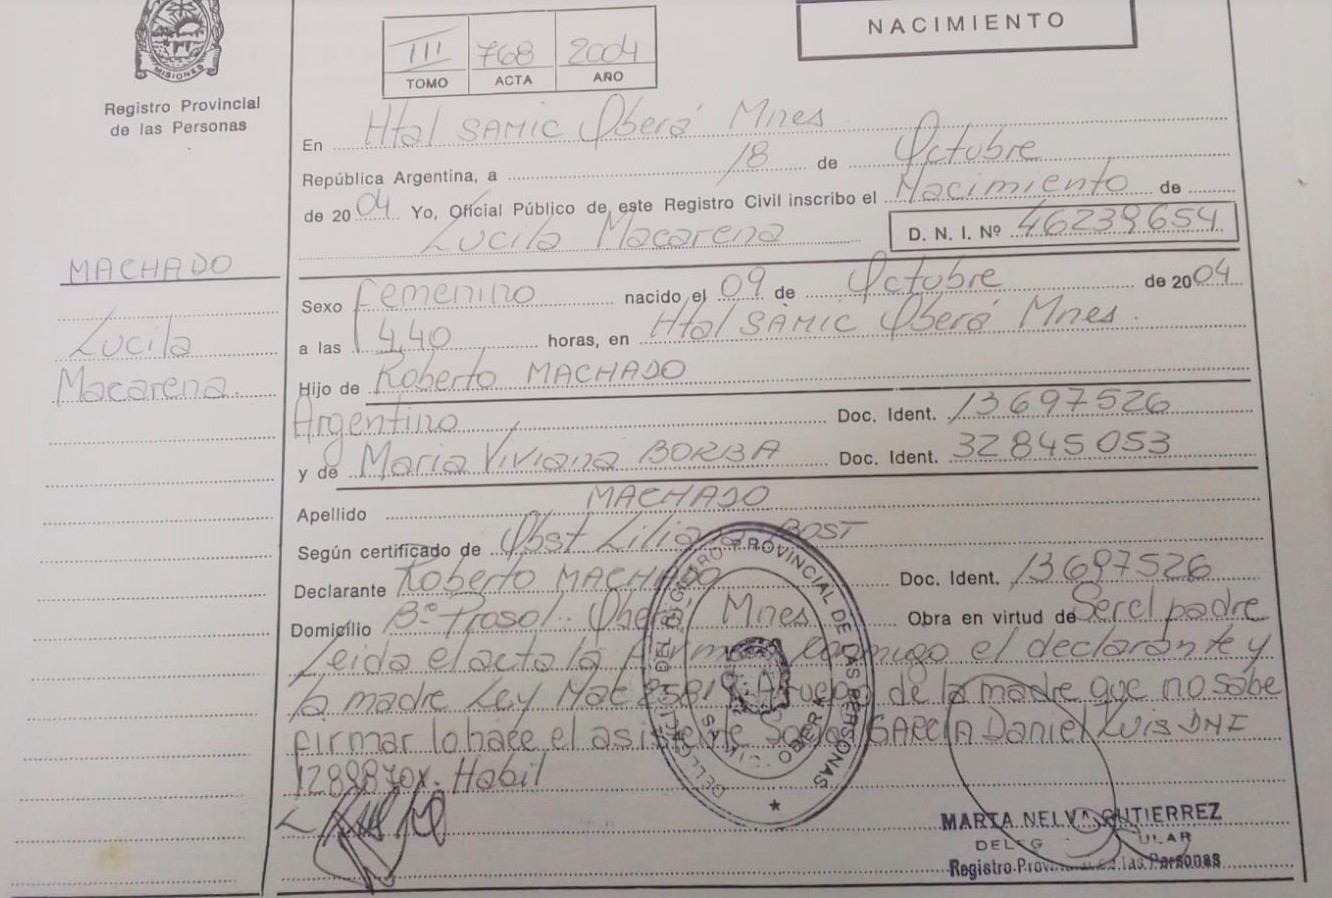 NACIMIENTO
III 768 2004
TOMO ACTA AÑO
MISIONES
Registro Provincial
de las Personas
En Htal SAMIC Oberá Mnes
República Argentina, a 18 de Octubre
de 2004 Yo, Oficial Público de este Registro Civil inscribo el Nacimiento de
Lucila Macarena D. N. I. Nº 46239654
MACHADO
Lucila
Macarena
Sexo femenino nacido el 09 de Octubre de 2004
a las 14,40 horas, en Htal SAMIC Oberá Mnes.
Hijo de Roberto MACHADO
Argentino Doc. Ident. 13697526
y de Maria Viviana BORBA Doc. Ident. 32845053
Apellido MACHADO
Según certificado de Obst Liliana BOST
Declarante Roberto MACHADO Doc. Ident. 13697526
Domicilio Bº Prosol. Oberá Mnes Obra en virtud de Ser el padre
Leida el acta la firma conmigo el declarante y
la madre Ley Nac A ruego de la madre que no sabe
firmar lo hace el asistente Social GARCIA Daniel Luis DNI
Habil
REGISTRO PROVINCIAL DE LAS PERSONAS
OBERA
MARTA NELVA GUTIERREZ
Registro de las Personas